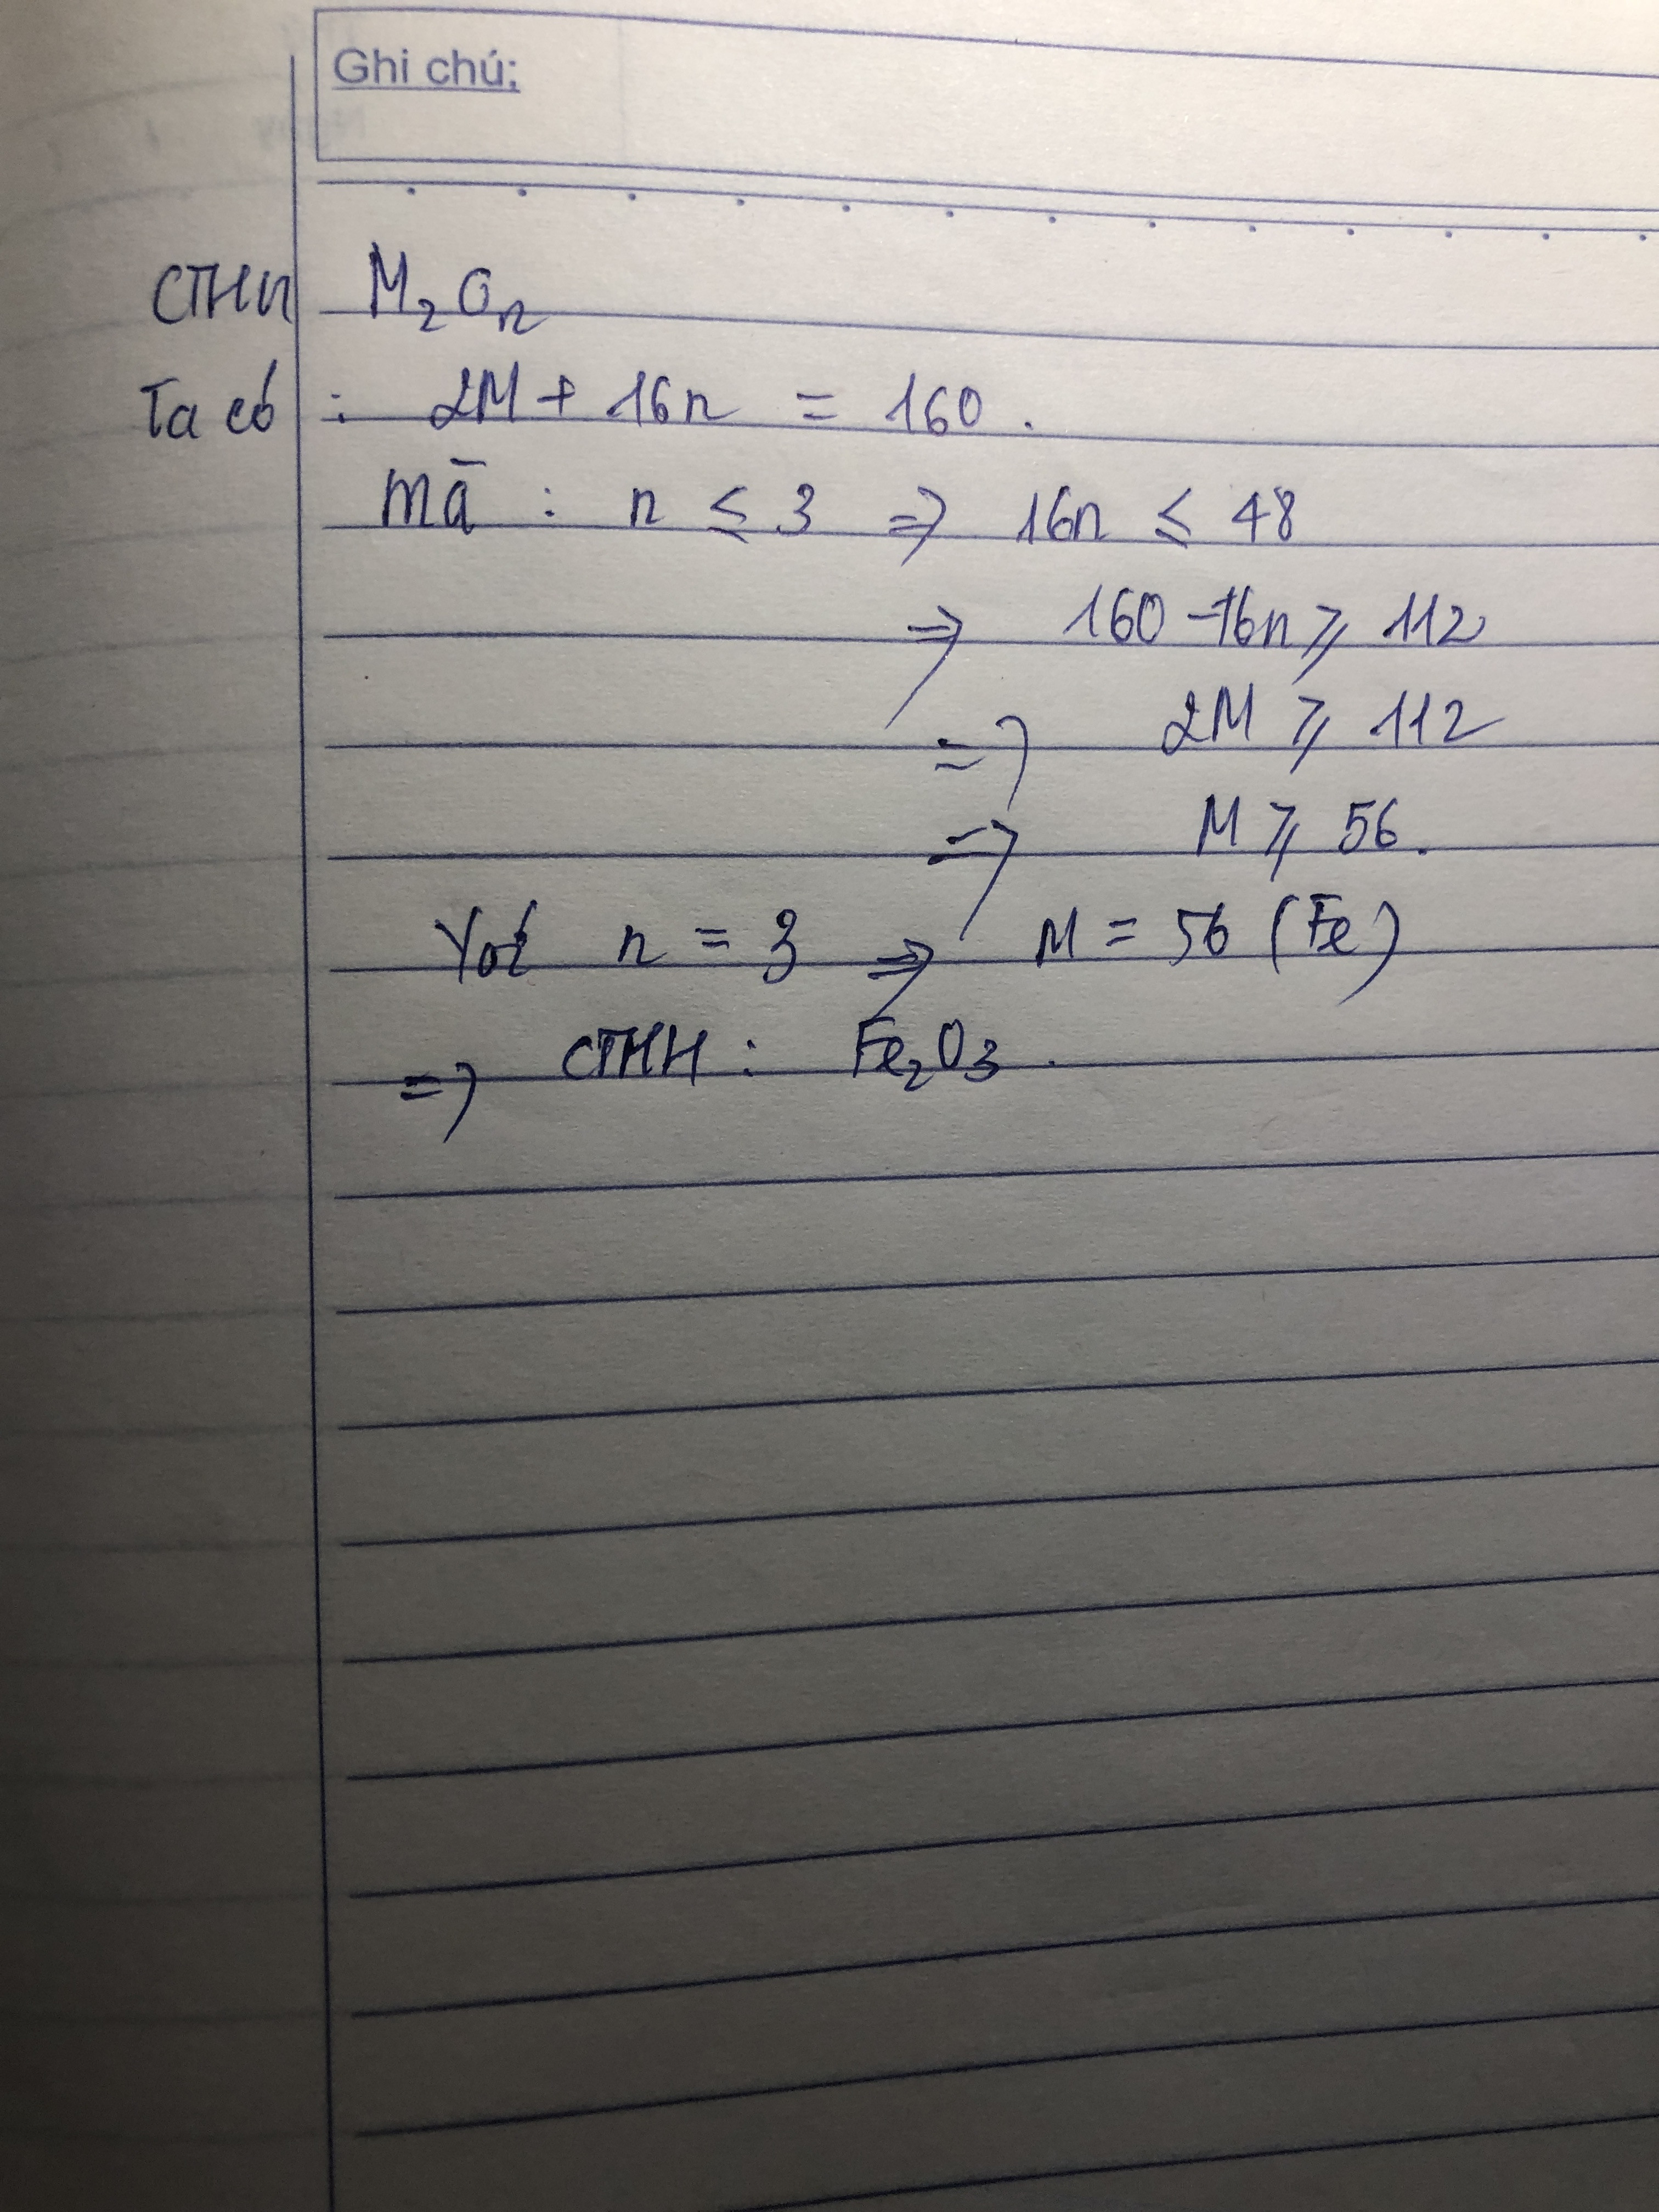 Ghi chú;
CTHH M₂Oₙ
Ta có : 2M + 16n = 160.
mà : n ≤ 3 => 16n ≤ 48
=> 160 - 16n ≥ 112
=> 2M ≥ 112
=> M ≥ 56.
Với n = 3 => M = 56 (Fe)
=> CTHH : Fe₂O₃.